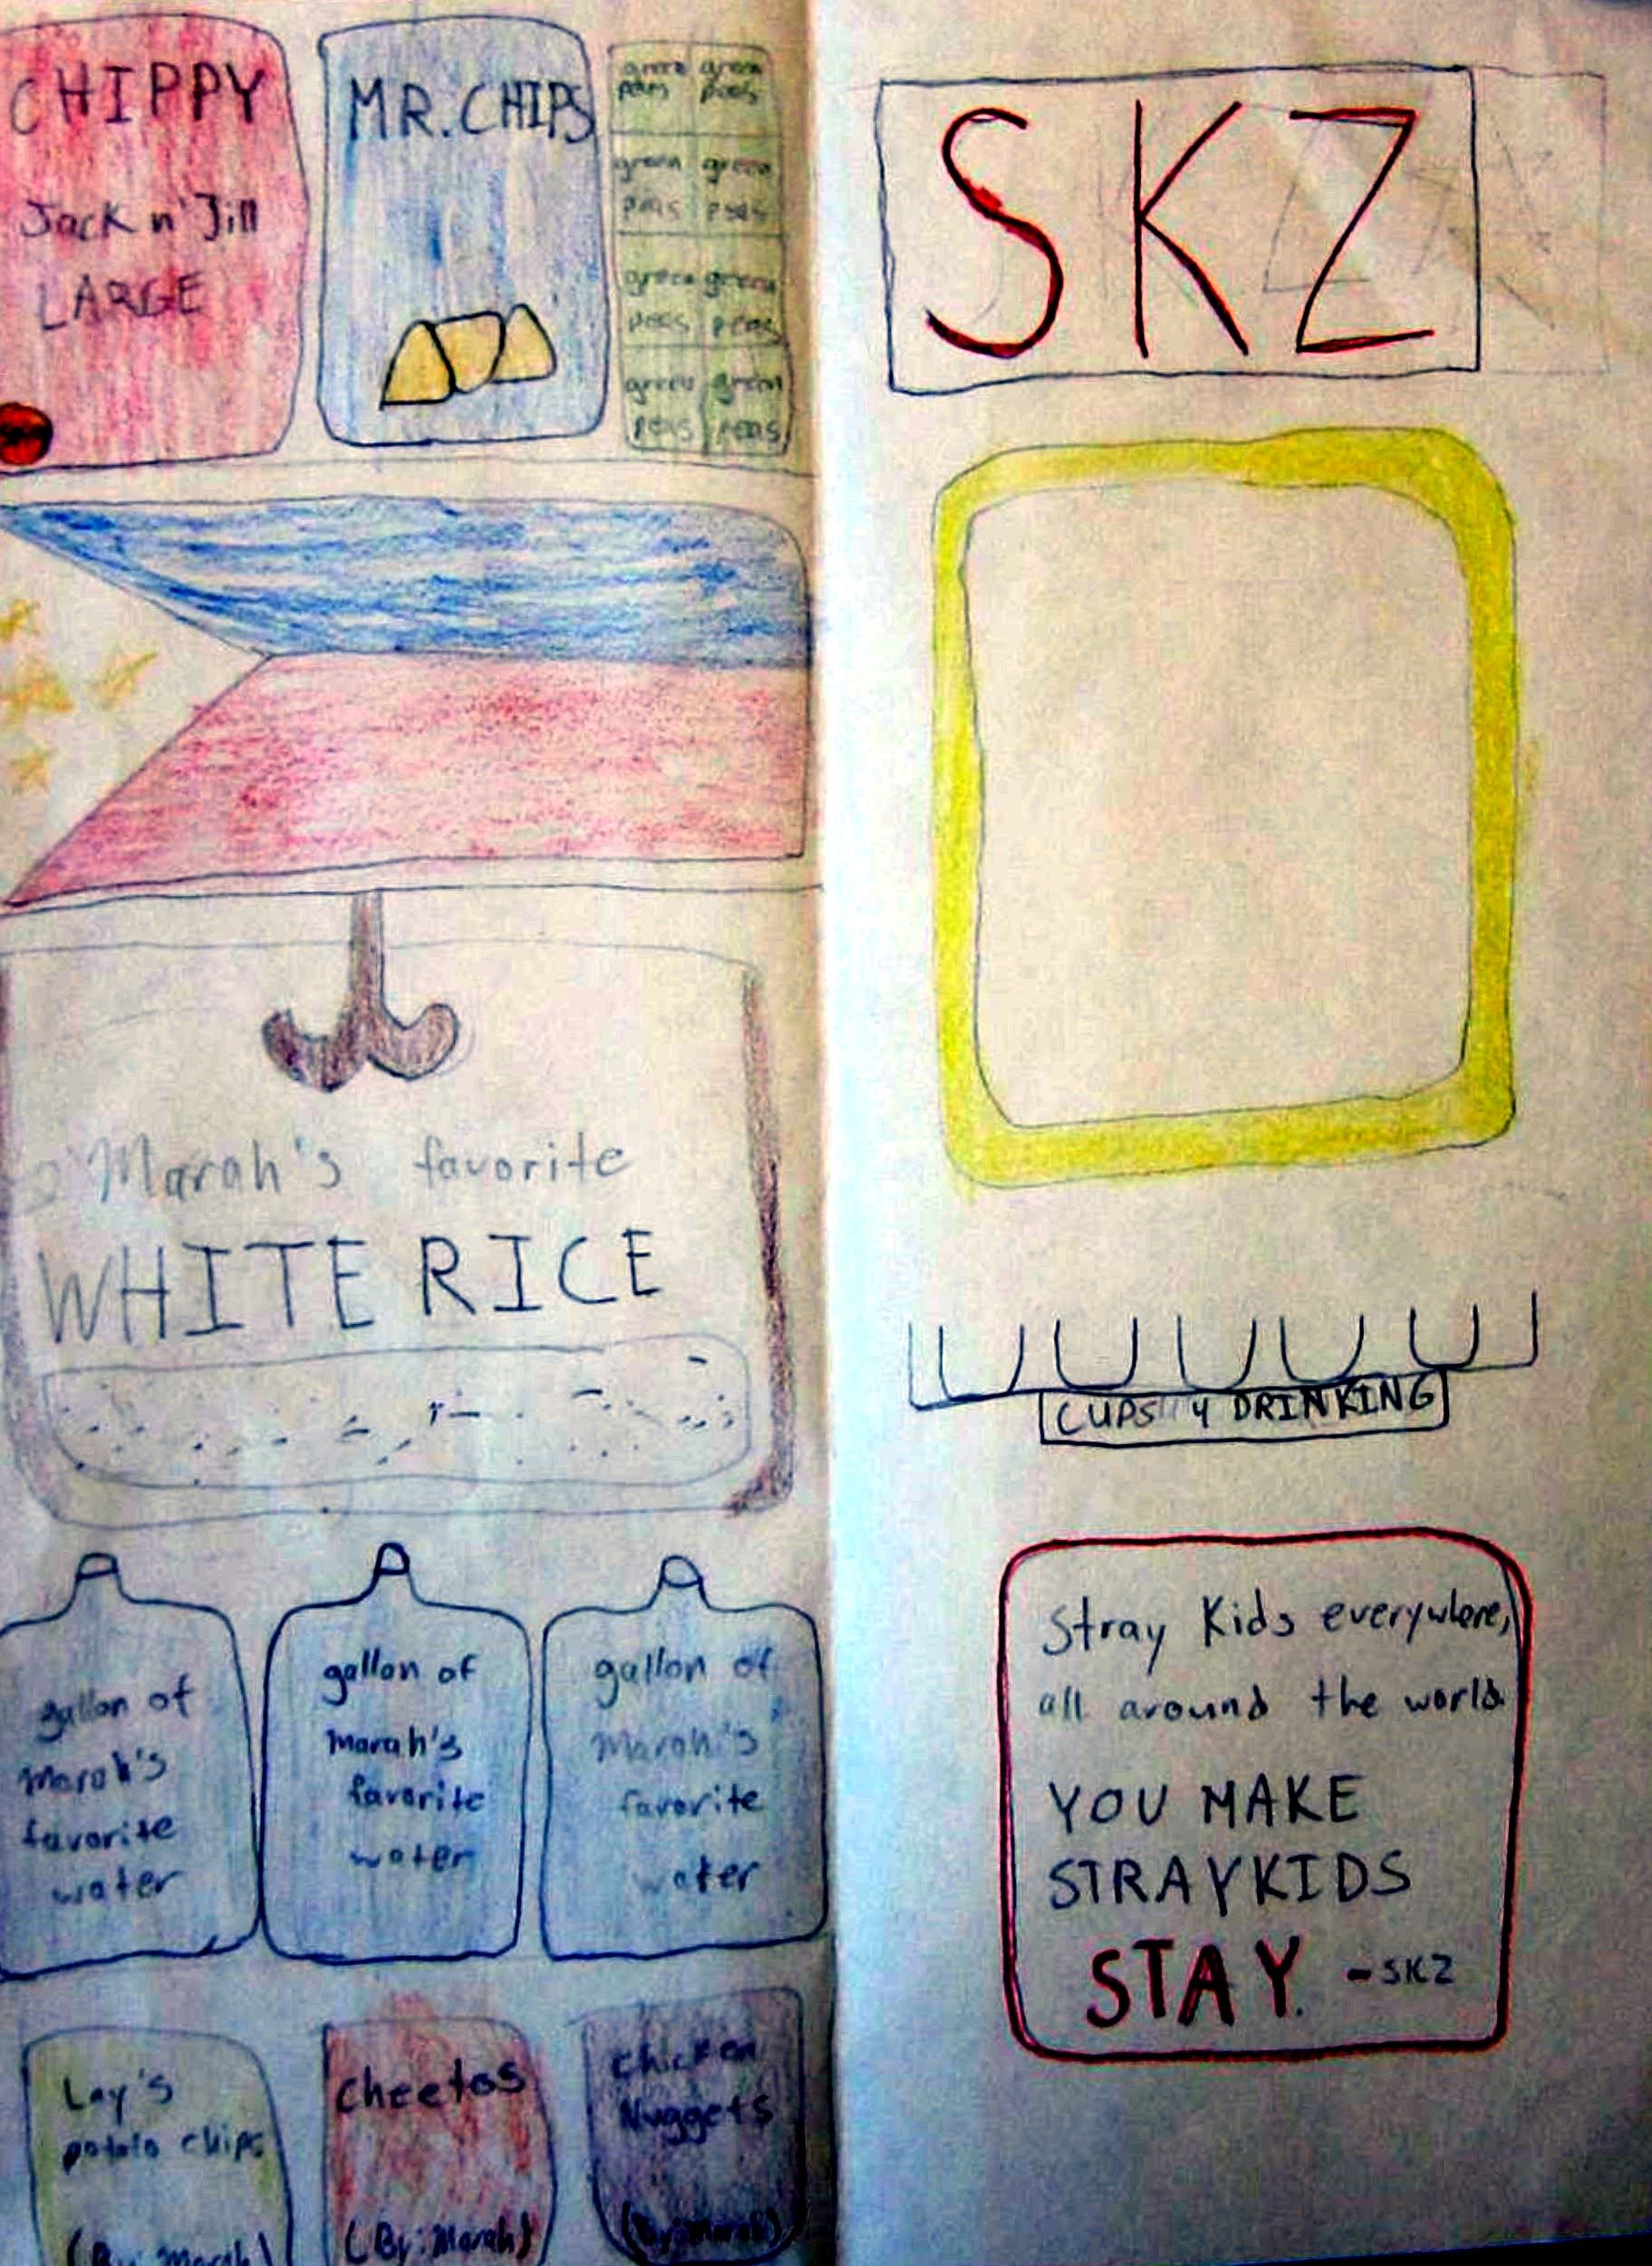 CHIPPY
Jack n' Jill
LARGE
MR. CHIPS
green green
peas peas
green green
peas peas
green green
peas peas
green green
peas peas
Marah's favorite
WHITE RICE
gallon of
Marah's
favorite
water
gallon of
Marah's
favorite
water
gallon of
Marah's
favorite
water
Lay's
potato chips
(By: Marah)
Cheetos
(By: Marah)
Chicken
Nuggets
(By: Marah)
SKZ
CUPS 4 DRINKING
Stray Kids everywhere,
all around the world.
YOU MAKE
STRAYKIDS
STAY.
-SKZ